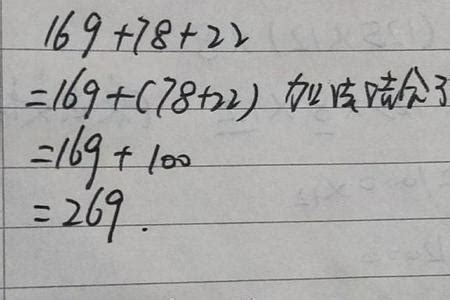 169+78+22
=169+(78+22) 加法结合
=169+100
=269.